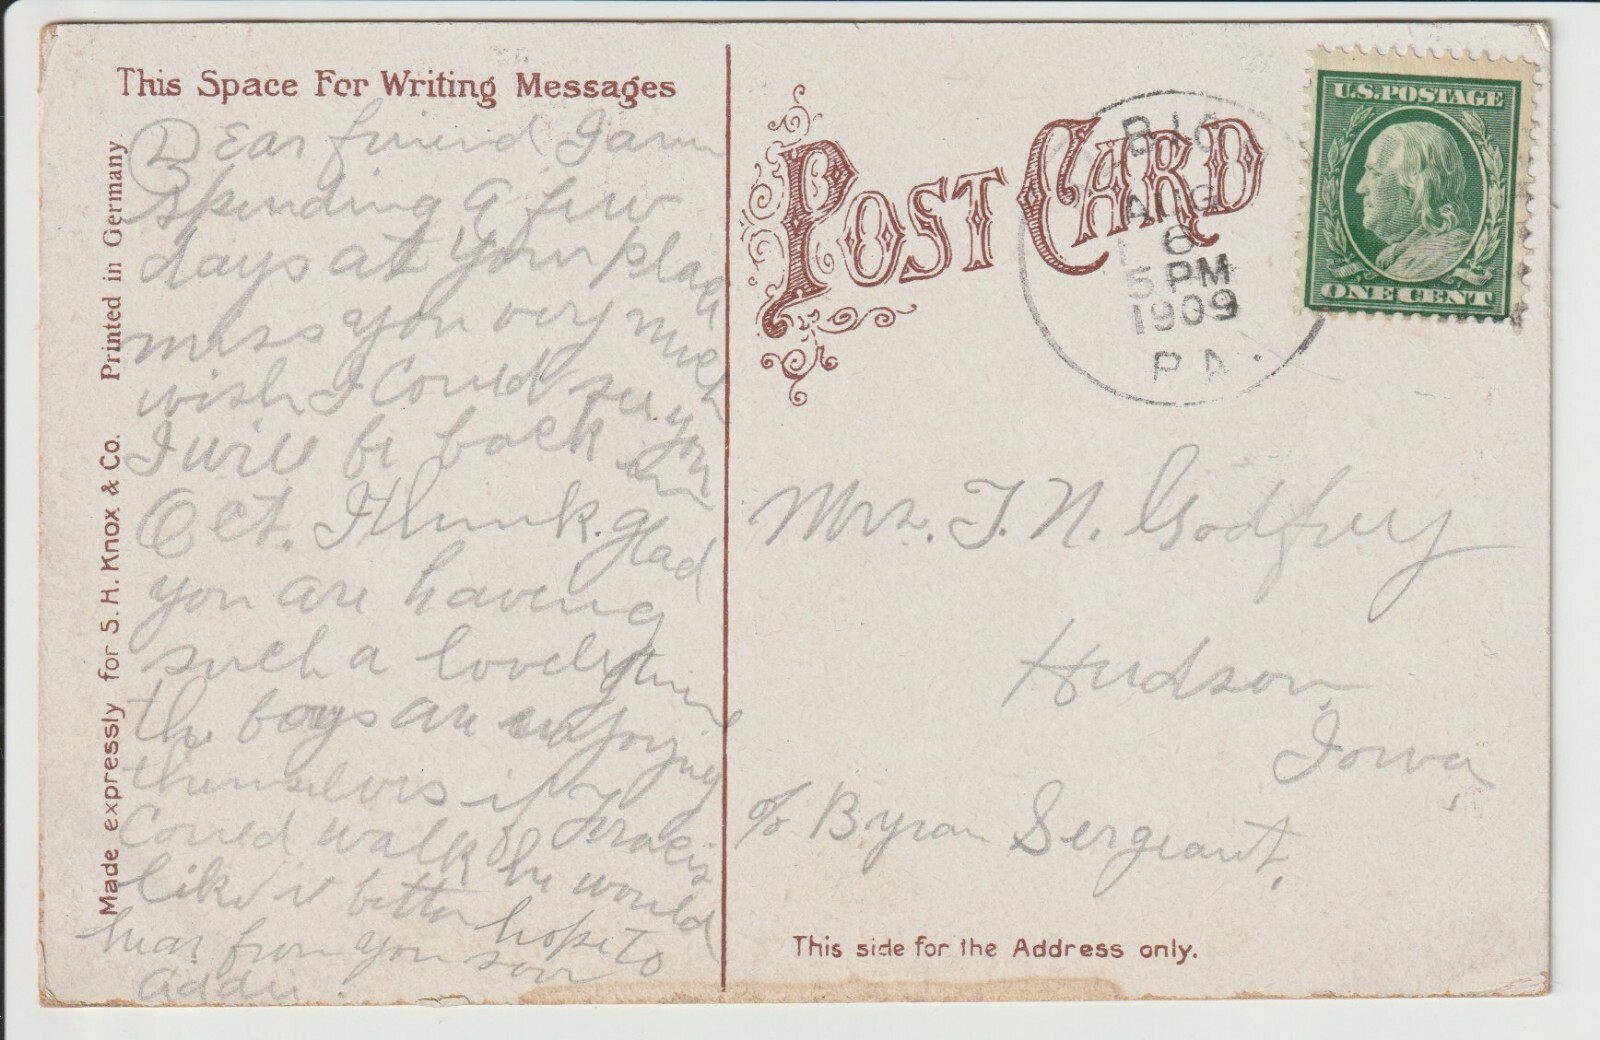 This Space For Writing Messages
Dear friend I am
spending a few
days at your place
miss you very much
wish I could see you
I will be back in
Oct. I think. glad
you are having
such a lovely time
the boys are enjoying
themselves if
could walk he would
like it better hope to
hear from you soon
Addie.
Made expressly for S. H. Knox & Co. Printed in Germany
POST CARD
BIG
AUG
6
5 PM
1909
PA.
U.S. POSTAGE
ONE CENT
Mrs. T. N. Godfrey
Hudson
Iowa
c/o Byron Sergeant.
This side for the Address only.